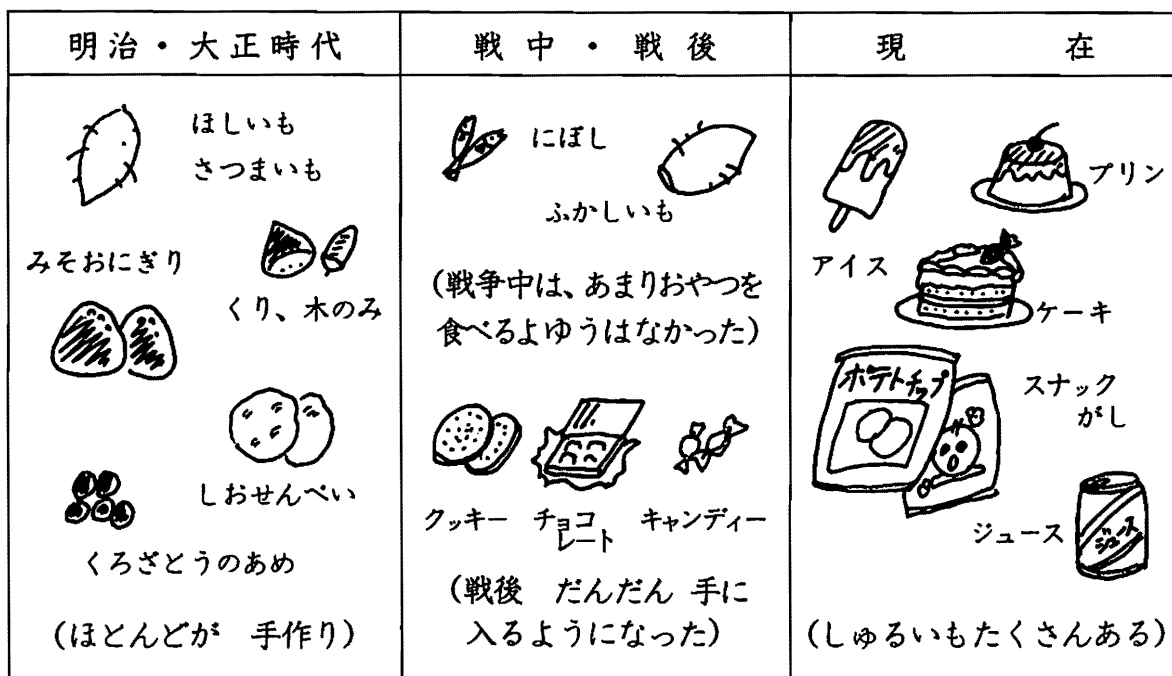 明治・大正時代
ほしいも
さつまいも
みそおにぎり
くり、木のみ
しおせんべい
くろざとうのあめ
(ほとんどが 手作り)
戦中・戦後
にぼし
ふかしいも
(戦争中は、あまりおやつを
食べるよゆうはなかった)
クッキー
チョコ
レート
キャンディー
(戦後 だんだん 手に
入るようになった)
現在
プリン
アイス
ケーキ
ポテトチップ
スナック
がし
ジュース
ジュース
(しゅるいもたくさんある)